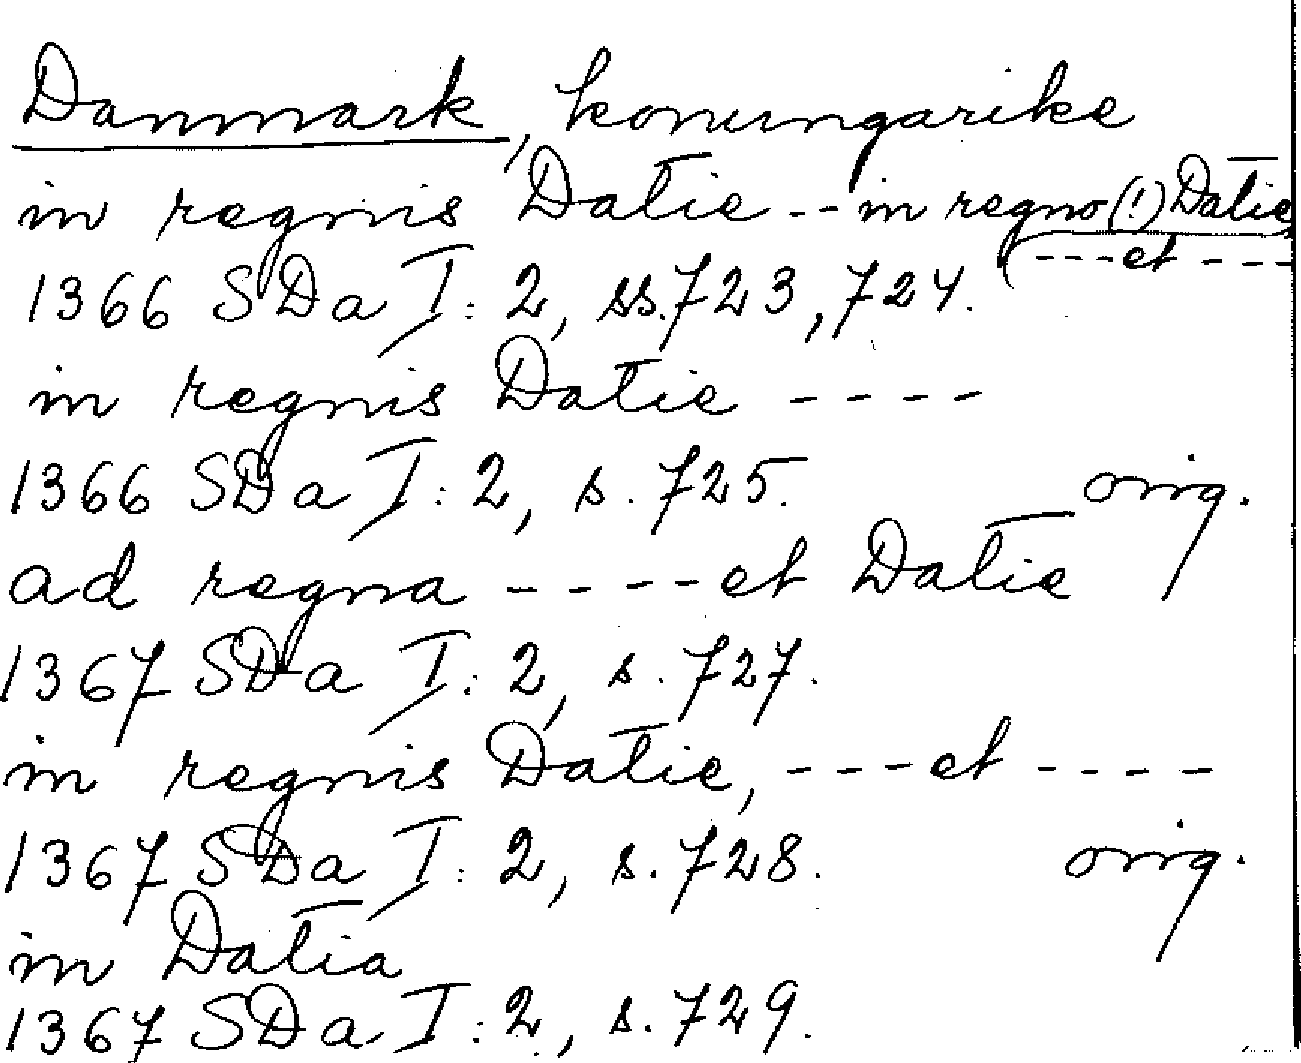 Danmark, konungarike
in regnis Datie -- in regno (!) Datie
--- et ---
1366 SDa I: 2, ss. 723, 724.
in regnis Datie ----
1366 SDa I: 2, s. 725. orig.
ad regna ---- et Datie
1367 SDa I: 2, s. 727.
in regnis Datie, --- et ----
1367 SDa I: 2, s. 728. orig.
in Datia
1367 SDa I: 2, s. 729.